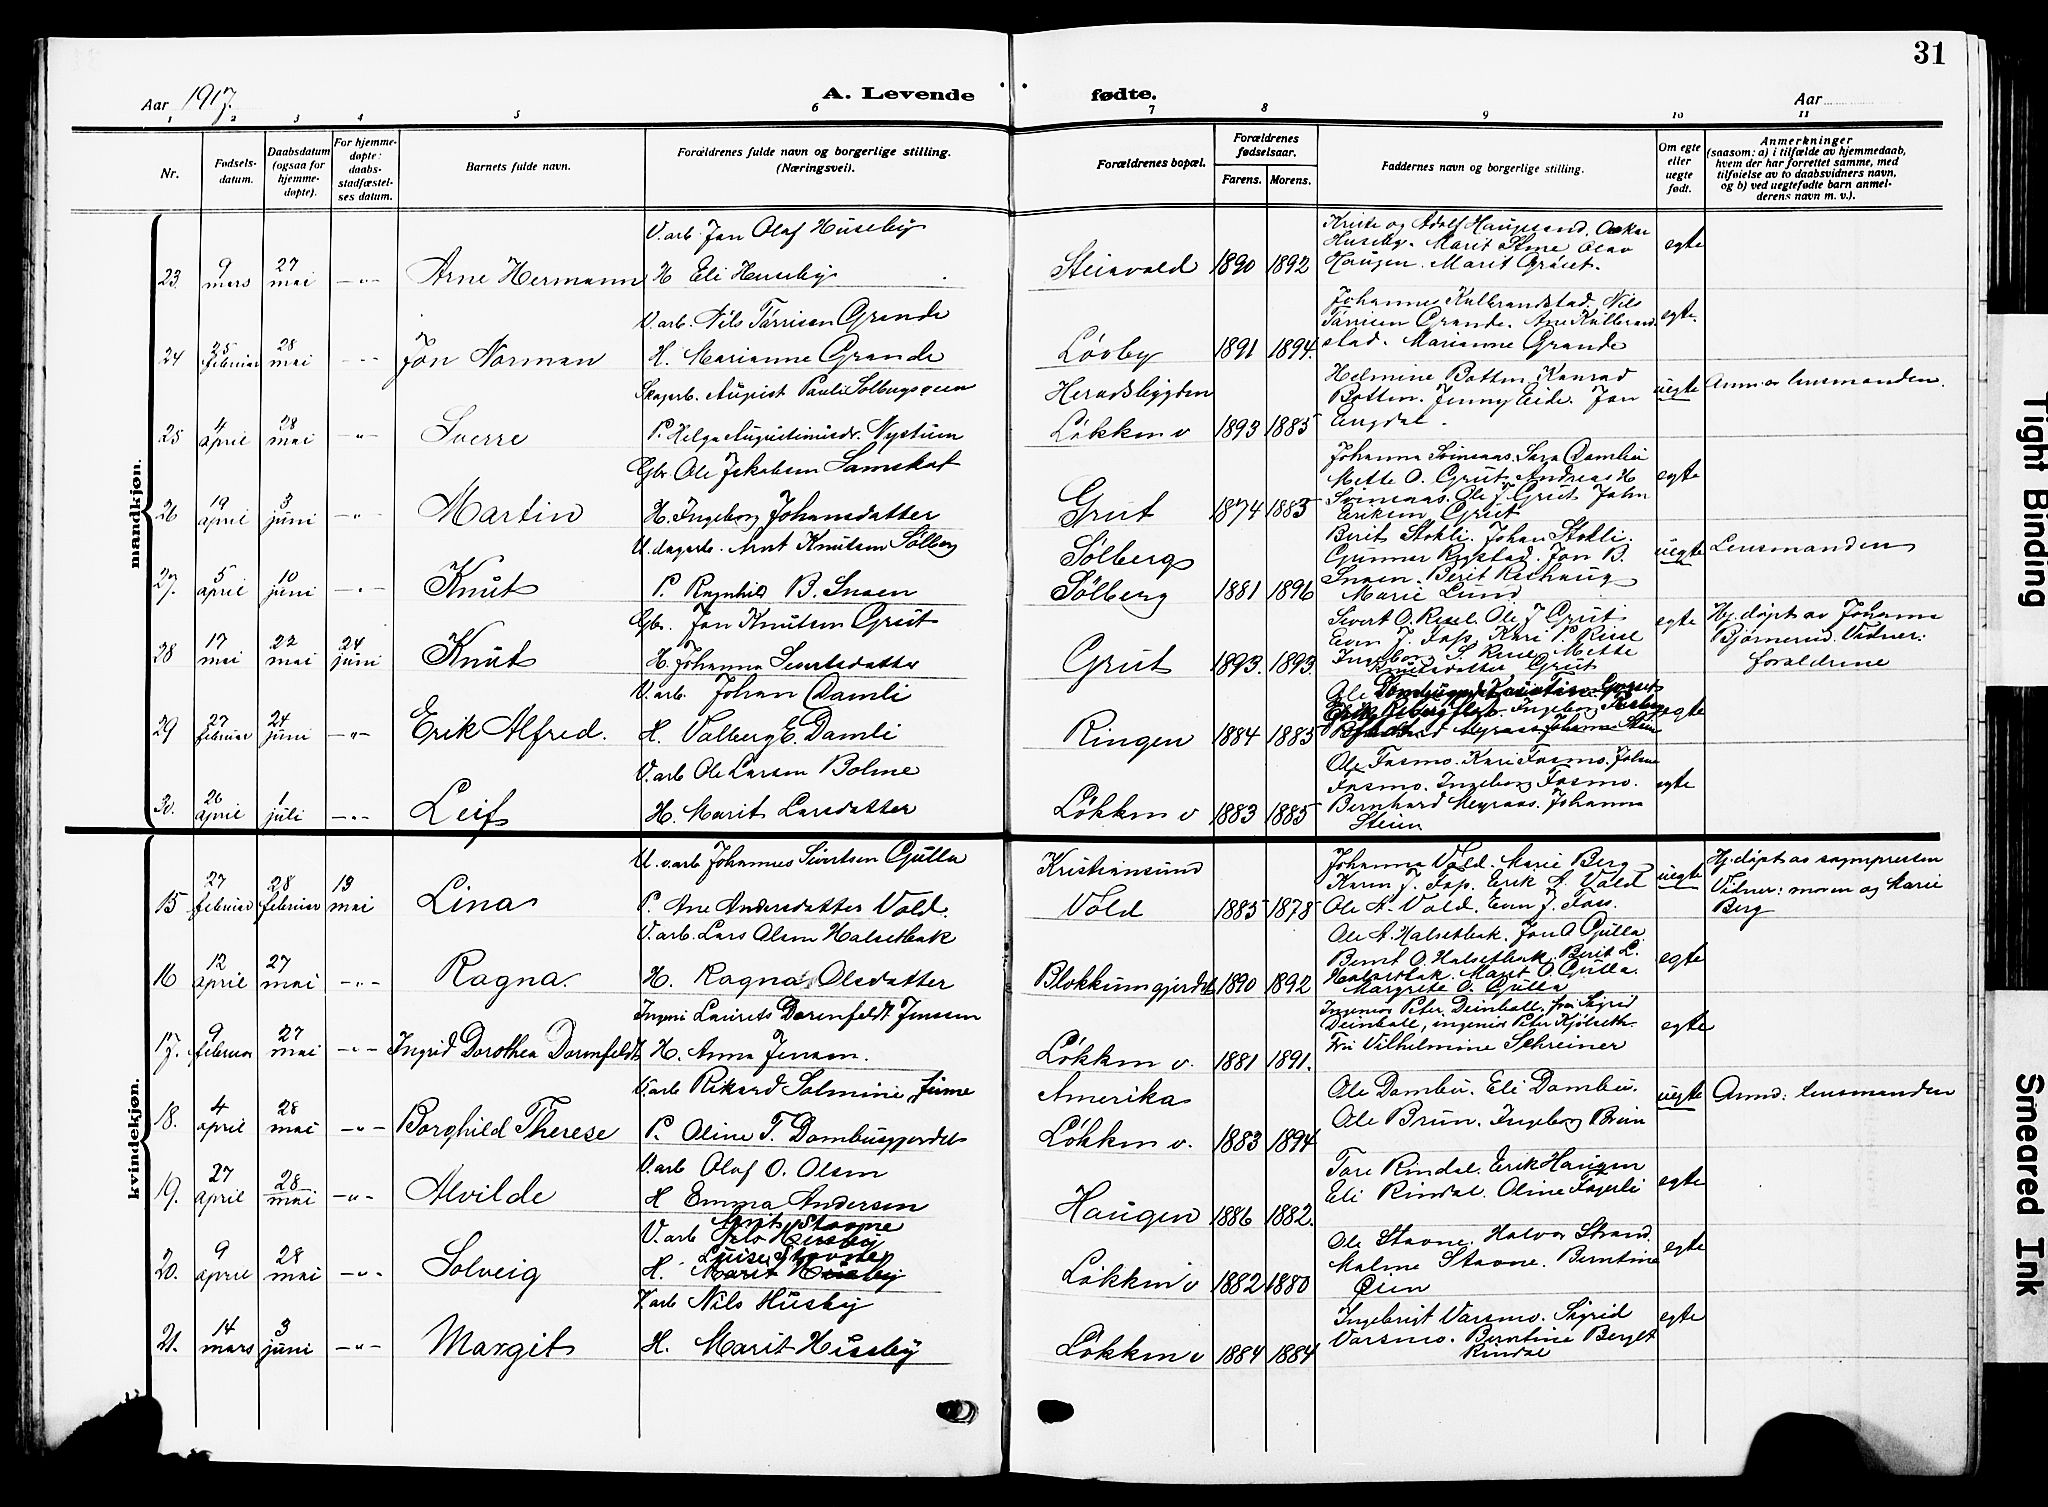 31
Aar 1917. A. Levende fødte. Aar
1 2 3 4 5 6 7 8 9 10 11
Nr.
Fødsels-
datum.
Daabsdatum
(ogsaa for
hjemme-
døpte).
For hjemme-
døpte:
daabs-
stadfæstel-
ses datum.
Barnets fulde navn.
Forældrenes fulde navn og borgerlige stilling.
(Næringsvei).
Forældrenes bopæl.
Forældrenes
fødselsaar.
Farens. Morens.
Faddernes navn og borgerlige stilling.
Om egte
eller
uegte
født.
Anmerkninger
(saasom: a) i tilfælde av hjemmedaab,
hvem der har forrettet samme, med
tilføielse av to daabsvidners navn,
og b) ved uegtefødte barn anmel-
derens navn m. v.).
mandkjøn.
23. 9 mars 27 mai -"- Arne Hermann
V. arb. Jon Olaf Huseby
H Eli Huseby
Steinvald 1890 1892
Huseby. Marit Stme Olav
Haugen. Marit Grøset.
egte
24 25 februar 28 mai -"- Jon Norman
V. arb. Nils Tørrisen Grande
H. Marianne Grande
Løvby 1891 1894.
Johannes Kulbrandstad. Nils
Tørrisen Grande. Ane Kulbrand-
stad. Marianne Grande
egte.
25 4 april 28 mai -"- Sverre
Skogarb. August Pauli Solbergsveen
P. Helga Augustinusdr. Nystuen
Heradsbygden
Løkken v 1893 1885
Helmine Botten, Konrad
Botten. Jenny Eide. Jon
Engdal.
uegte Anm. av lensmanden.
26 19 april 3 juni -"- Martin
Gbr. Ole Jakobsen Samskot
H. Ingeborg Johansdatter
Grut 1874 1885
Johanna Svinsaas. Sara Damlia
Mette O. Grut. Andreas H
Svinsaas. Ole J Grut John
Eriksen Grut
egte
27. 5 april 10 juni -"- Knut
U. dagarb. Arnt Knutsen Sølberg
P. Ragnhild B. Snoen
Sølberg
Sølberg 1881 1896
Berit Stokli. Johan Stokli.
Gunnar Rygstad. Jon B.
Snoen. Berit Reshaug
Marie Lund
uegte Lensmanden
28 17 mai 22 mai 24 juni Knut
Gbr. Jon Knutsen Grut
H. Johanna Sivertsdatter
Grut 1893. 1893.
Sivert O. Resel. Ole J Grut
Even J. Fop. Kari P. Resel
Ingeborg S. Resel. Mette
Knutsdatter Grut
egte Hj. døpt av Johanna
Bjørnerud. Vidner:
forældrene
29 27 februar 24 juni -"- Erik Alfred.
V. arb. Johan Damli
H. Valberg E. Damli
Ringen 1884 1885
egte
30. 26 april 1 juli -"- Leif
V. arb Ole Larsen Bolme
H. Marit Larsdatter
Løkken v 1883 1885
Ole Fosmo. Kari Fosmo. Johan
Fosmo. Ingeborg Fosmo.
Bernhard Megraas. Johanna
Steien
egte
kvindekjøn.
15 27 februar 28 februar 13 mai Lina
U. v. arb Johannes Sivertsen Gulla
P. Ane Andersdatter Vold.
Kristiansund
Vold 1885 1878
Johanna Vold. Marie Berg
Karen J. Fop. Erik A. Vold
Ole A. Vold. Even J. Foss.
uegte Hj. døpt av sognepresten
Vidner: moren og Marie
Berg
16 12 april 27 mai -"- Ragna.
V. arb. Lars Olsen Halsetbak
H. Ragna Olsdatter
Blokkumgjerdet 1890 1892
Ole A. Halsetbak. Jon O Gulla
Bernt O. Halsetbak. Berit L.
Halsetbak. Marit O. Gulla.
Margrete O. Gulla
egte
17. 9 februar 27 mai -"- Ingrid Dorothea Dornfeldt
Ingeni Laurits Dorenfeldt Jenssen
H. Anna Jenssen.
Løkken v. 1881 1891.
Ingeniør Peter Deinboll, fru Sigrid
Deinboll, ingeniør Peter Kjølseth.
Fru Vilhelmine Schreiner
egte
18. 4 april 28 mai -"- Borghild Therese
V. arb Rikard Solmine June
P. Oline T. Dombugjerdet
Amerika
Løkken v. 1883 1894
Ole Dombu. Eli Dombu.
Ole Brun. Ingeborg Brun
uegte Anm: lensmanden
19. 27 april 28 mai -"- Alvilde
V. arb Olaf O. Olsen
H Emma Andersen
Haugen 1886 1882.
Tore Rindal. Erik Haugen
Eli Rindal. Oline Fagerli
egte
20. 9 april 28 mai -"- Solveig
Arnt Stavne
V. arb Nils Huseby
Luise Stavne
H. Marit Huseby
Løkken v 1882 1880
Ole Stavne. Halvor Strand.
Malene Stavne. Berntine
Øien
egte
21. 14 mars 3 juni -"- Margit
V. arb Nils Huseby
H. Marit Huseby
Løkken v 1884 1884
Ingebrigt Varsmo. Sigrid
Varsmo. Berntine Berget
Rindal
egte
Tight Binding
Smeared Ink